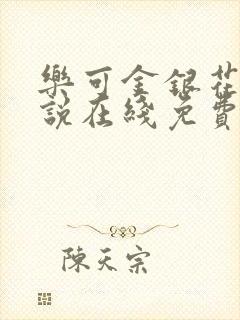 樂可金銀花
說在綫免費
陳天宗